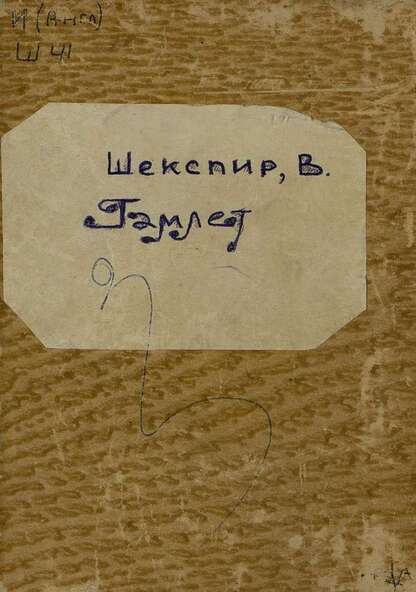 И (Англ)
Ш 41
Шекспир, В.
Гамлет